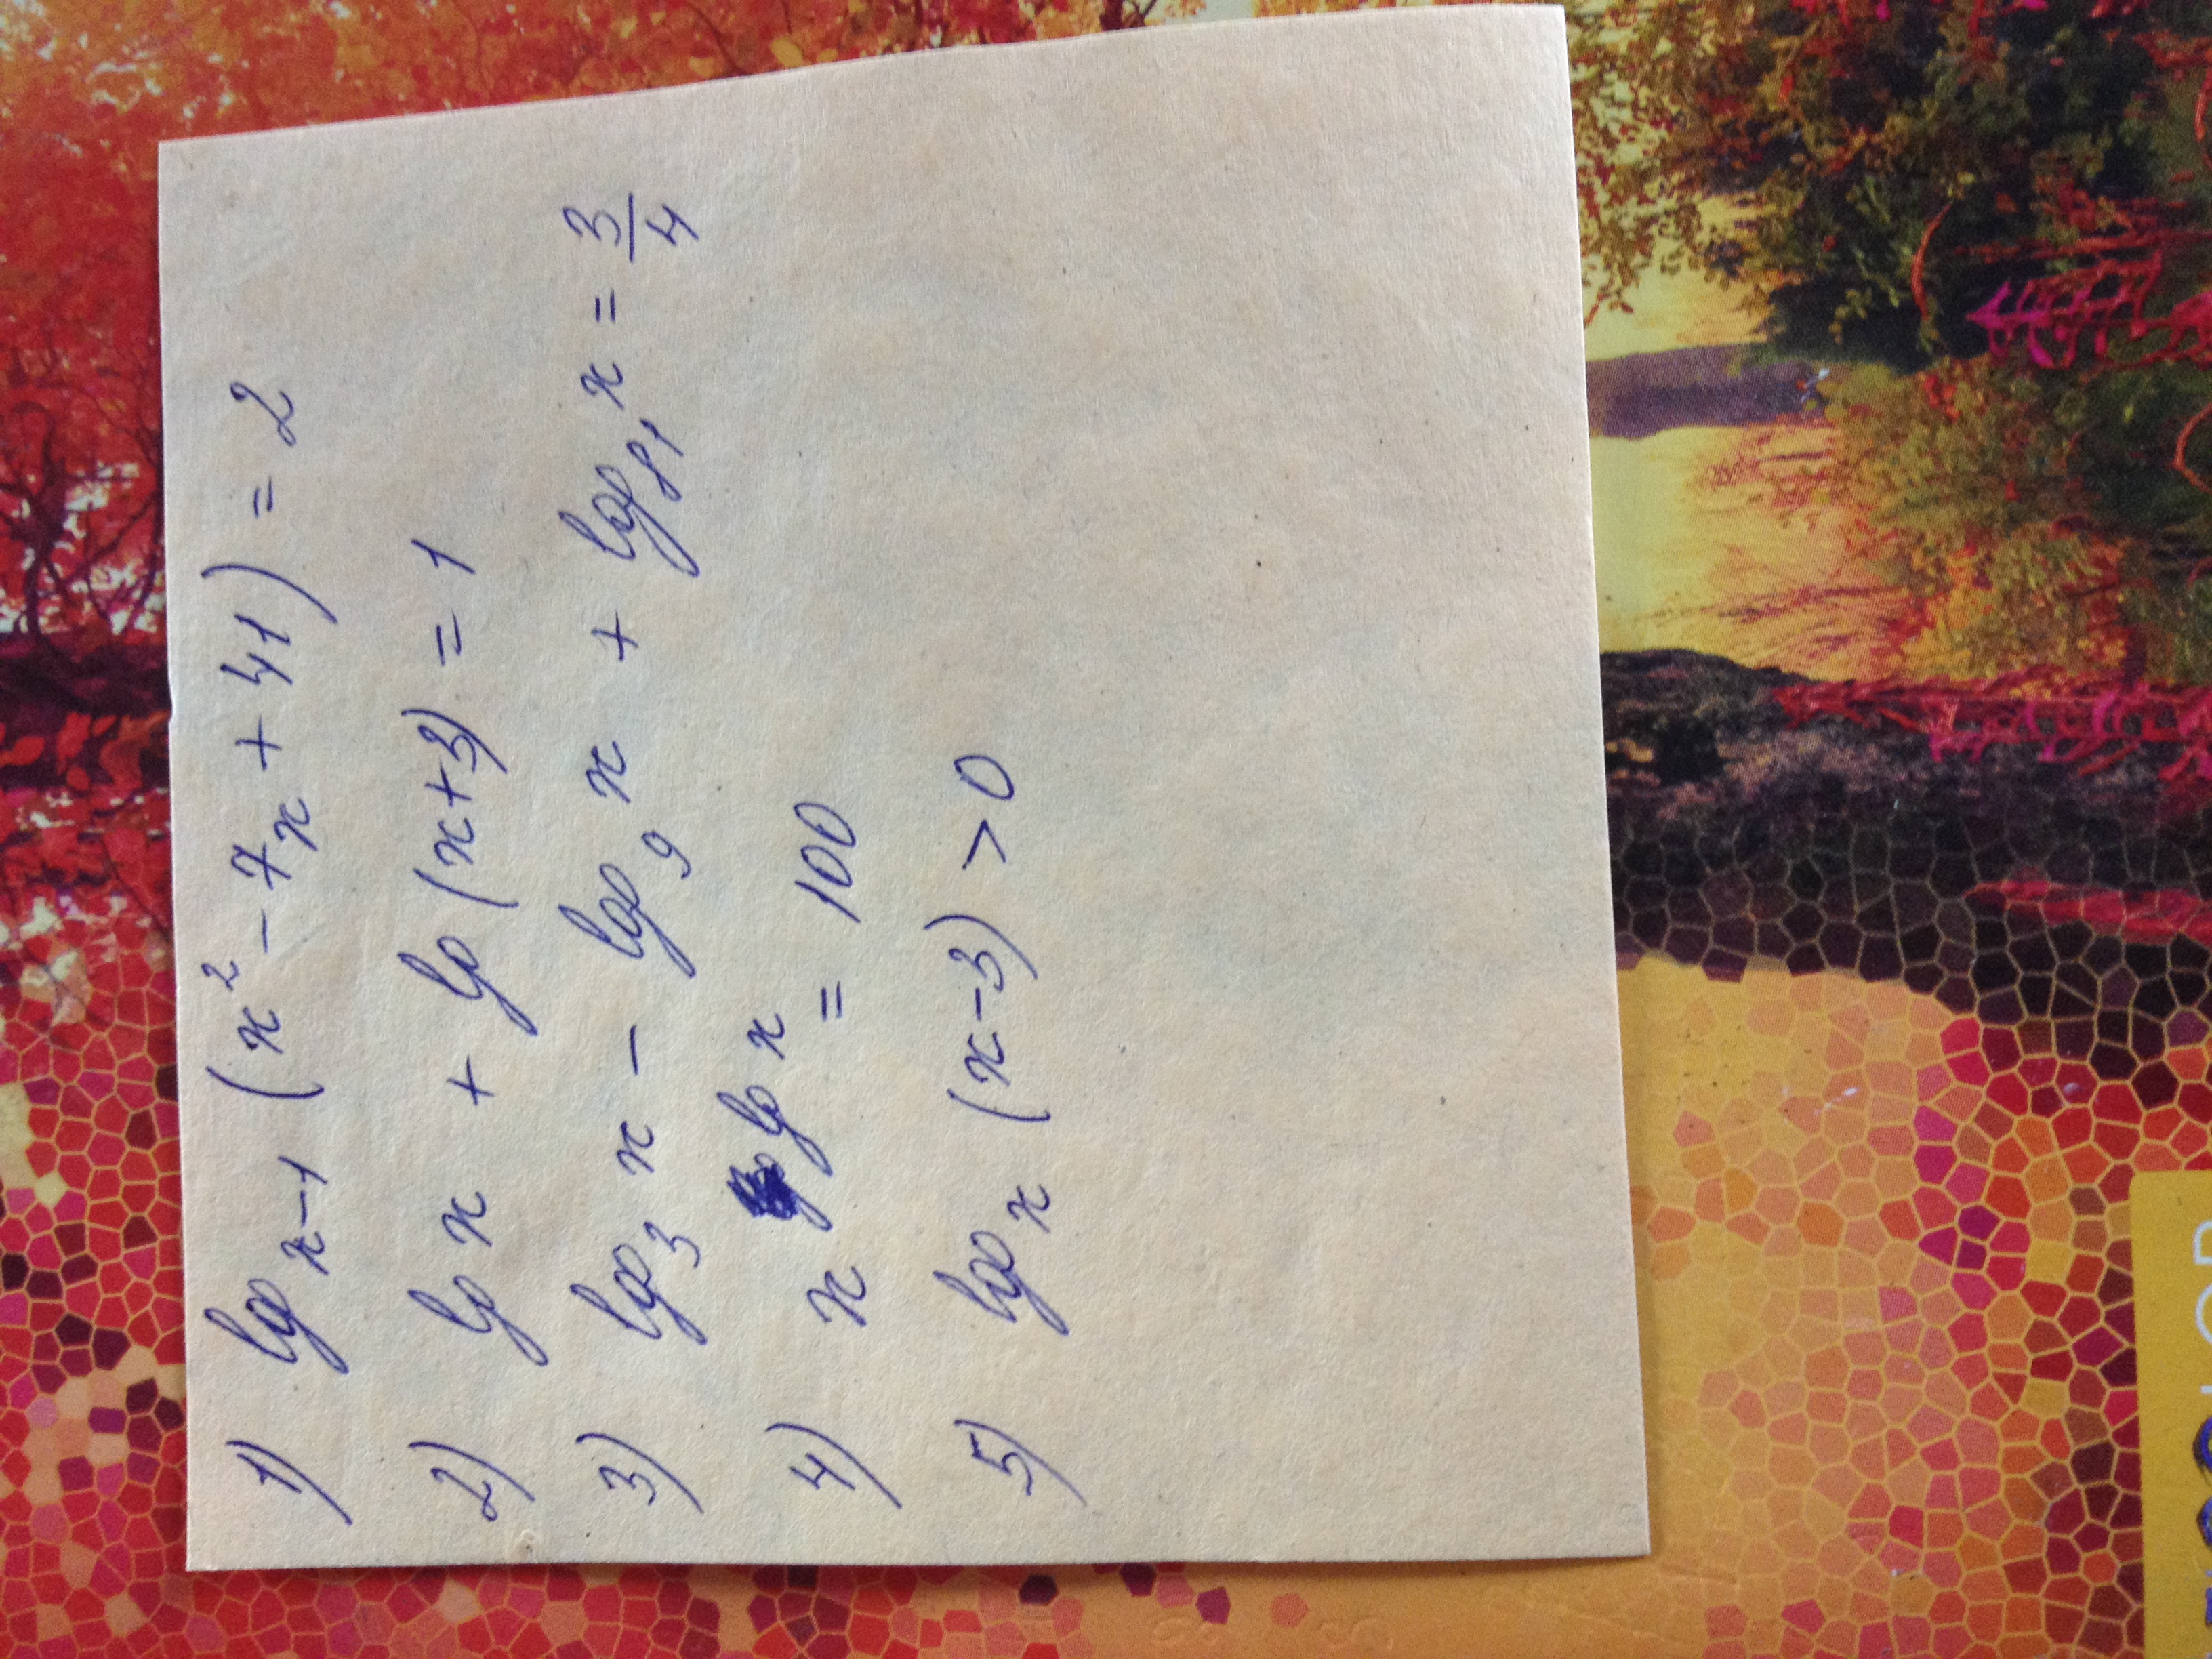 1) log_{x-1} (x² - 7x + 41) = 2
2) lg x + lg (x+3) = 1
3) log₃ x - log₉ x + log₈₁ x = 3/4
4) x^{lg x} = 100
5) log_x (x-3) > 0